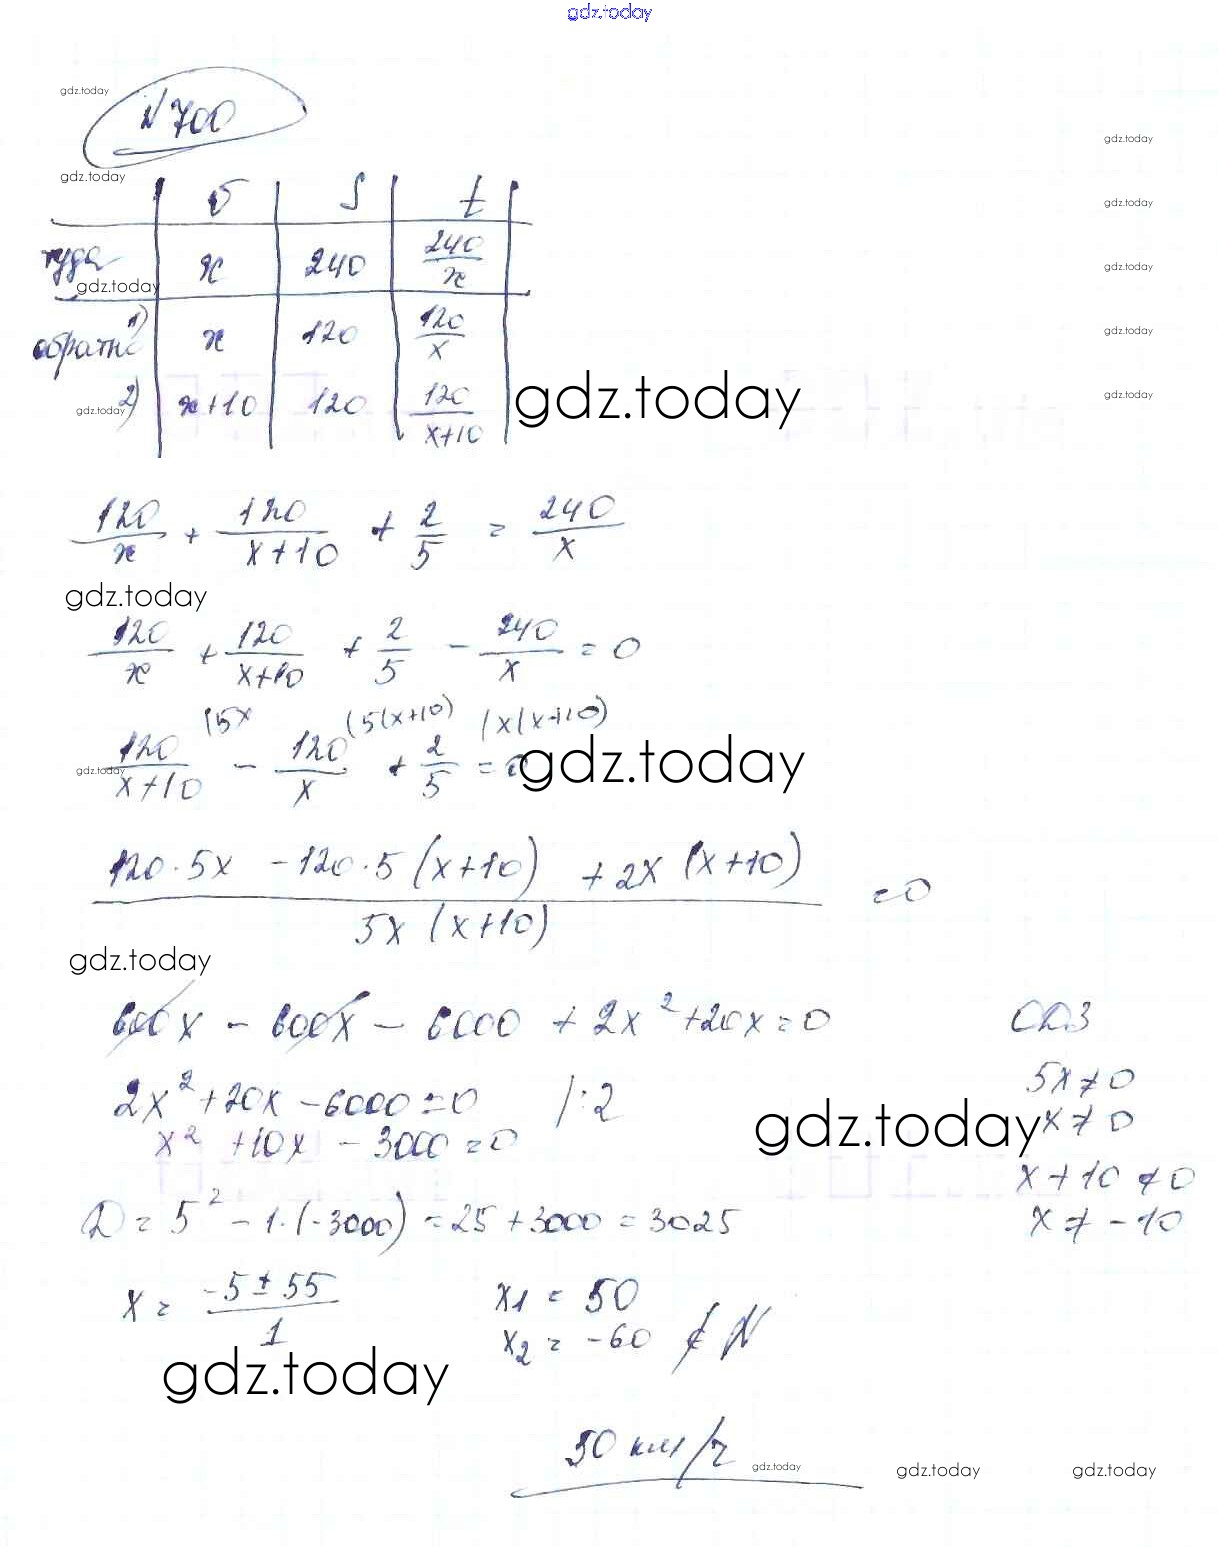 gdz.today
gdz.today
№ 700
gdz.today
gdz.today
gdz.today
υ S t
туда x 240 240/x
gdz.today
gdz.today
gdz.today
обратно 1) x 120 120/x
gdz.today
2) x+10 120 120/(x+10)
gdz.today
gdz.today
gdz.today
120/x + 120/(x+10) + 2/5 = 240/x
gdz.today
120/x + 120/(x+10) + 2/5 - 240/x = 0
120/(x+10) (5x - 120/x (5(x+10) + 2/5 (x(x+10) = 0
gdz.today
gdz.today
(120·5x - 120·5(x+10) + 2x(x+10))/(5x(x+10)) = 0
gdz.today
600x - 600x - 6000 + 2x² + 20x = 0 ОДЗ
2x² + 20x - 6000 = 0 /:2 5x ≠ 0
gdz.today
x² + 10x - 3000 = 0 x ≠ 0
x + 10 ≠ 0
D = 5² - 1·(-3000) = 25 + 3000 = 3025 x ≠ -10
x = (-5 ± 55)/1 x1 = 50
x2 = -60 ∉ N
gdz.today
50 км/ч
gdz.today
gdz.today
gdz.today